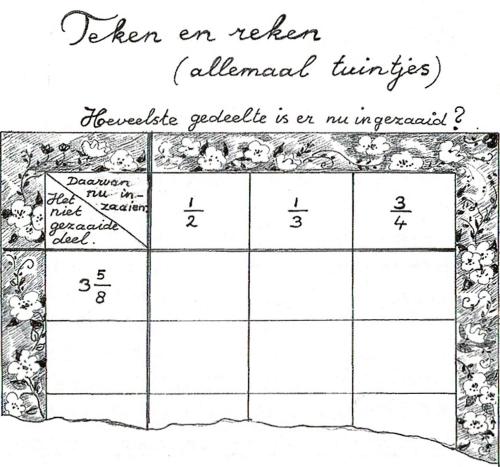 Teken en reken
(allemaal tuintjes)
Hoeveelste gedeelte is er nu ingezaaid?
Daarvan
nu in-
zaaien
Het
niet
gezaaide
deel.
1/2 1/3 3/4
3 5/8